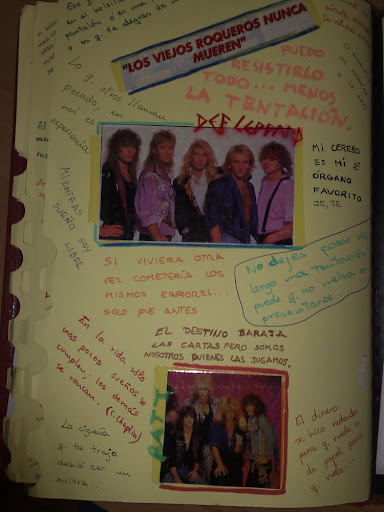 en el bolsillo
pantalón o en una
o es q' te alegras de v
"LOS VIEJOS ROQUEROS NUNCA
MUEREN"
PUEDO
RESISTIRLO
TODO... MENOS
LA TENTACIÓN.
Lo q' otros llaman
pecado, en
mí es
experiencia
DEF LEPPARD
MI CEREBRO
ES MI 2º
ÓRGANO
FAVORITO
JE, JE
MIENTRAS
SUEÑO SOY
LIBRE
SI VIVIERA OTRA
VEZ COMETERÍA LOS
MISMOS ERRORES...
SÓLO QUE ANTES
No dejes pasar de
largo una tentación
puede q' no vuelva a
presentarse...
EL DESTINO BARAJA
LAS CARTAS PERO SOMOS
NOSOTROS QUIENES LAS JUGAMOS.
En la vida sólo
unos pocos sueños se
cumplen, los demás
se roncan. (C. Chaplin)
RATT
La cigüeña
q' te trajo
debió ser un
buitre...
El dinero
se hizo redondo
para q' ruede, o
de papel para
q' vuele...